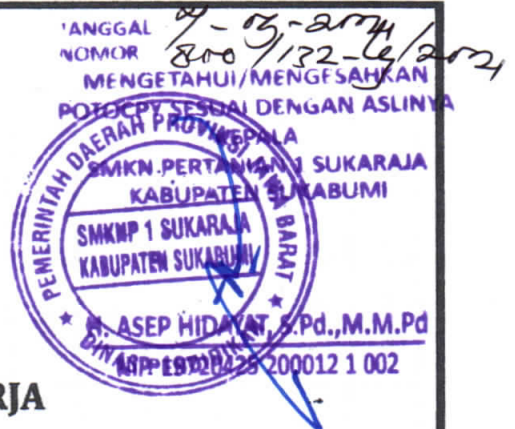 TANGGAL
NOMOR 800/132-
MENGETAHUI/MENGESAHKAN
POTOCPY SESUAI DENGAN ASLINYA
KEPALA
SMKN.PERTANIAN 1 SUKARAJA
KABUPATEN SUKABUMI
PEMERINTAH DAERAH PROVINSI JAWA BARAT
SMKNP 1 SUKARAJA
KABUPATEN SUKABUMI
DINAS PENDIDIKAN
H. ASEP HIDAYAT, S.Pd.,M.M.Pd
NIP 19720425 200012 1 002
RJA